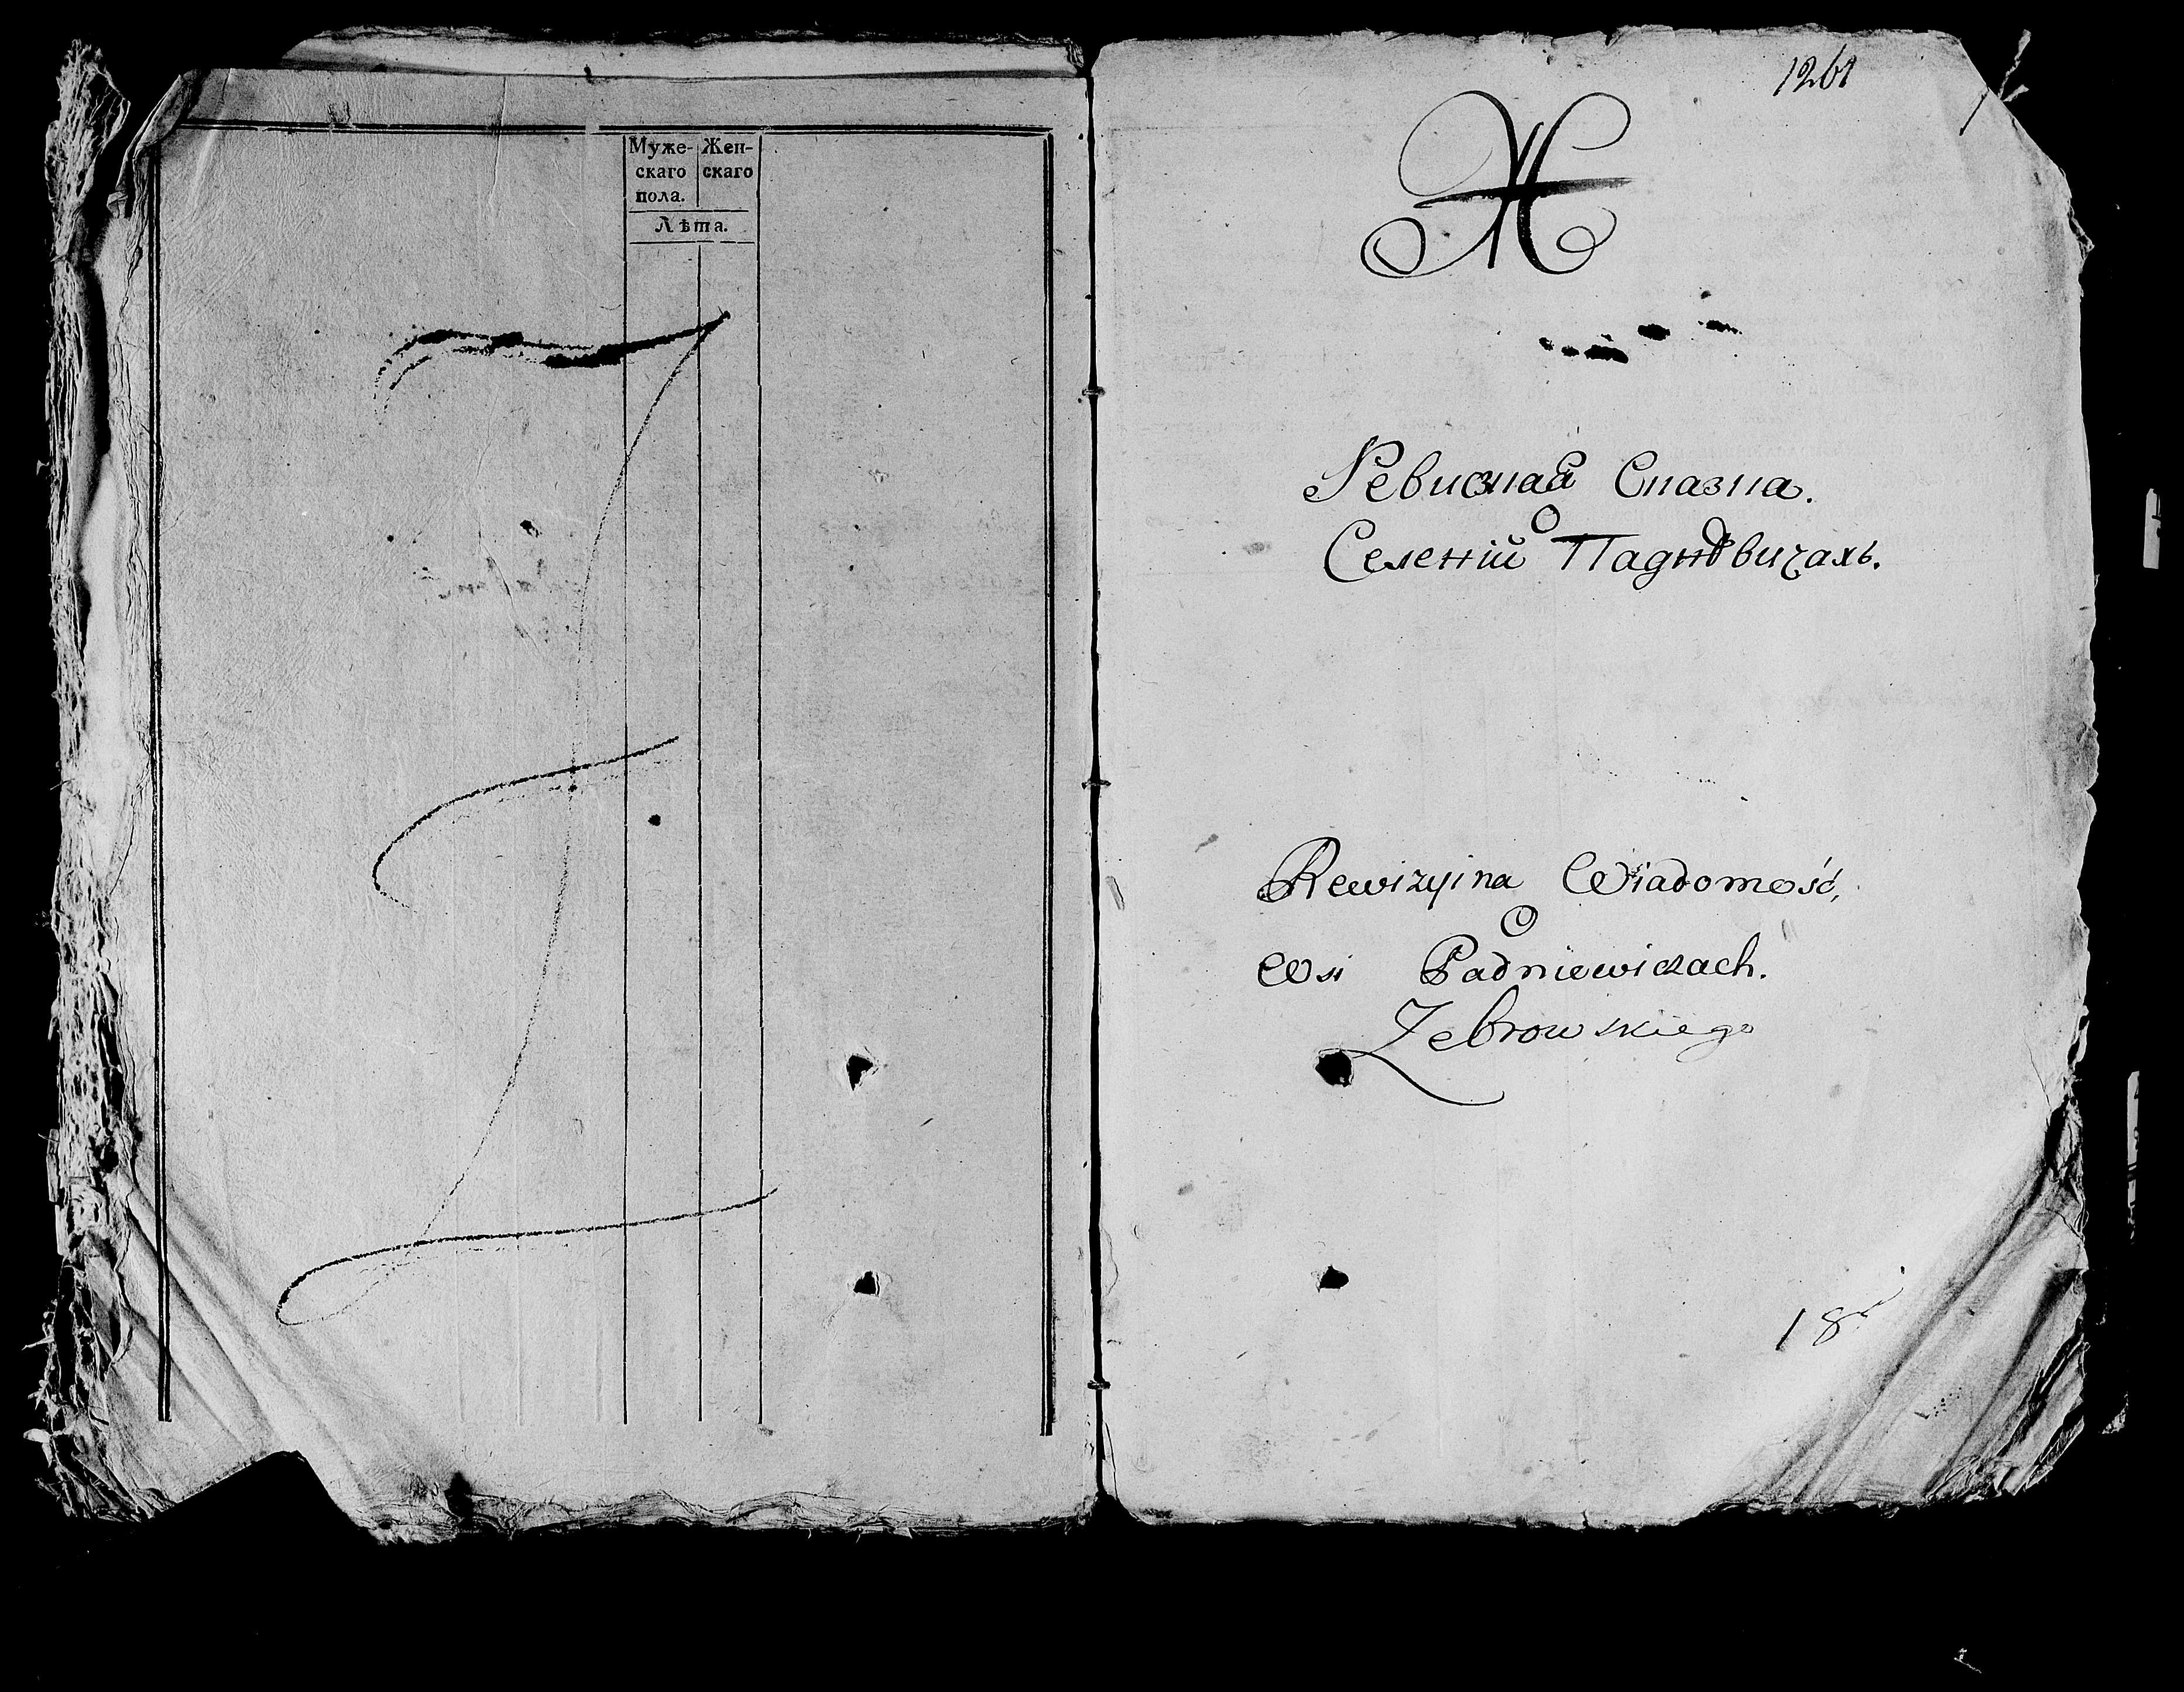 Муже- Жен-
скаго скаго
пола.
Лѣта.
1261
Ж
Ревизная Сказка.
О
Селеній Паднѣвичахъ.
Rewizyina Wiadomość,
O
Wsi Padniewiczach.
Zebrowskiego